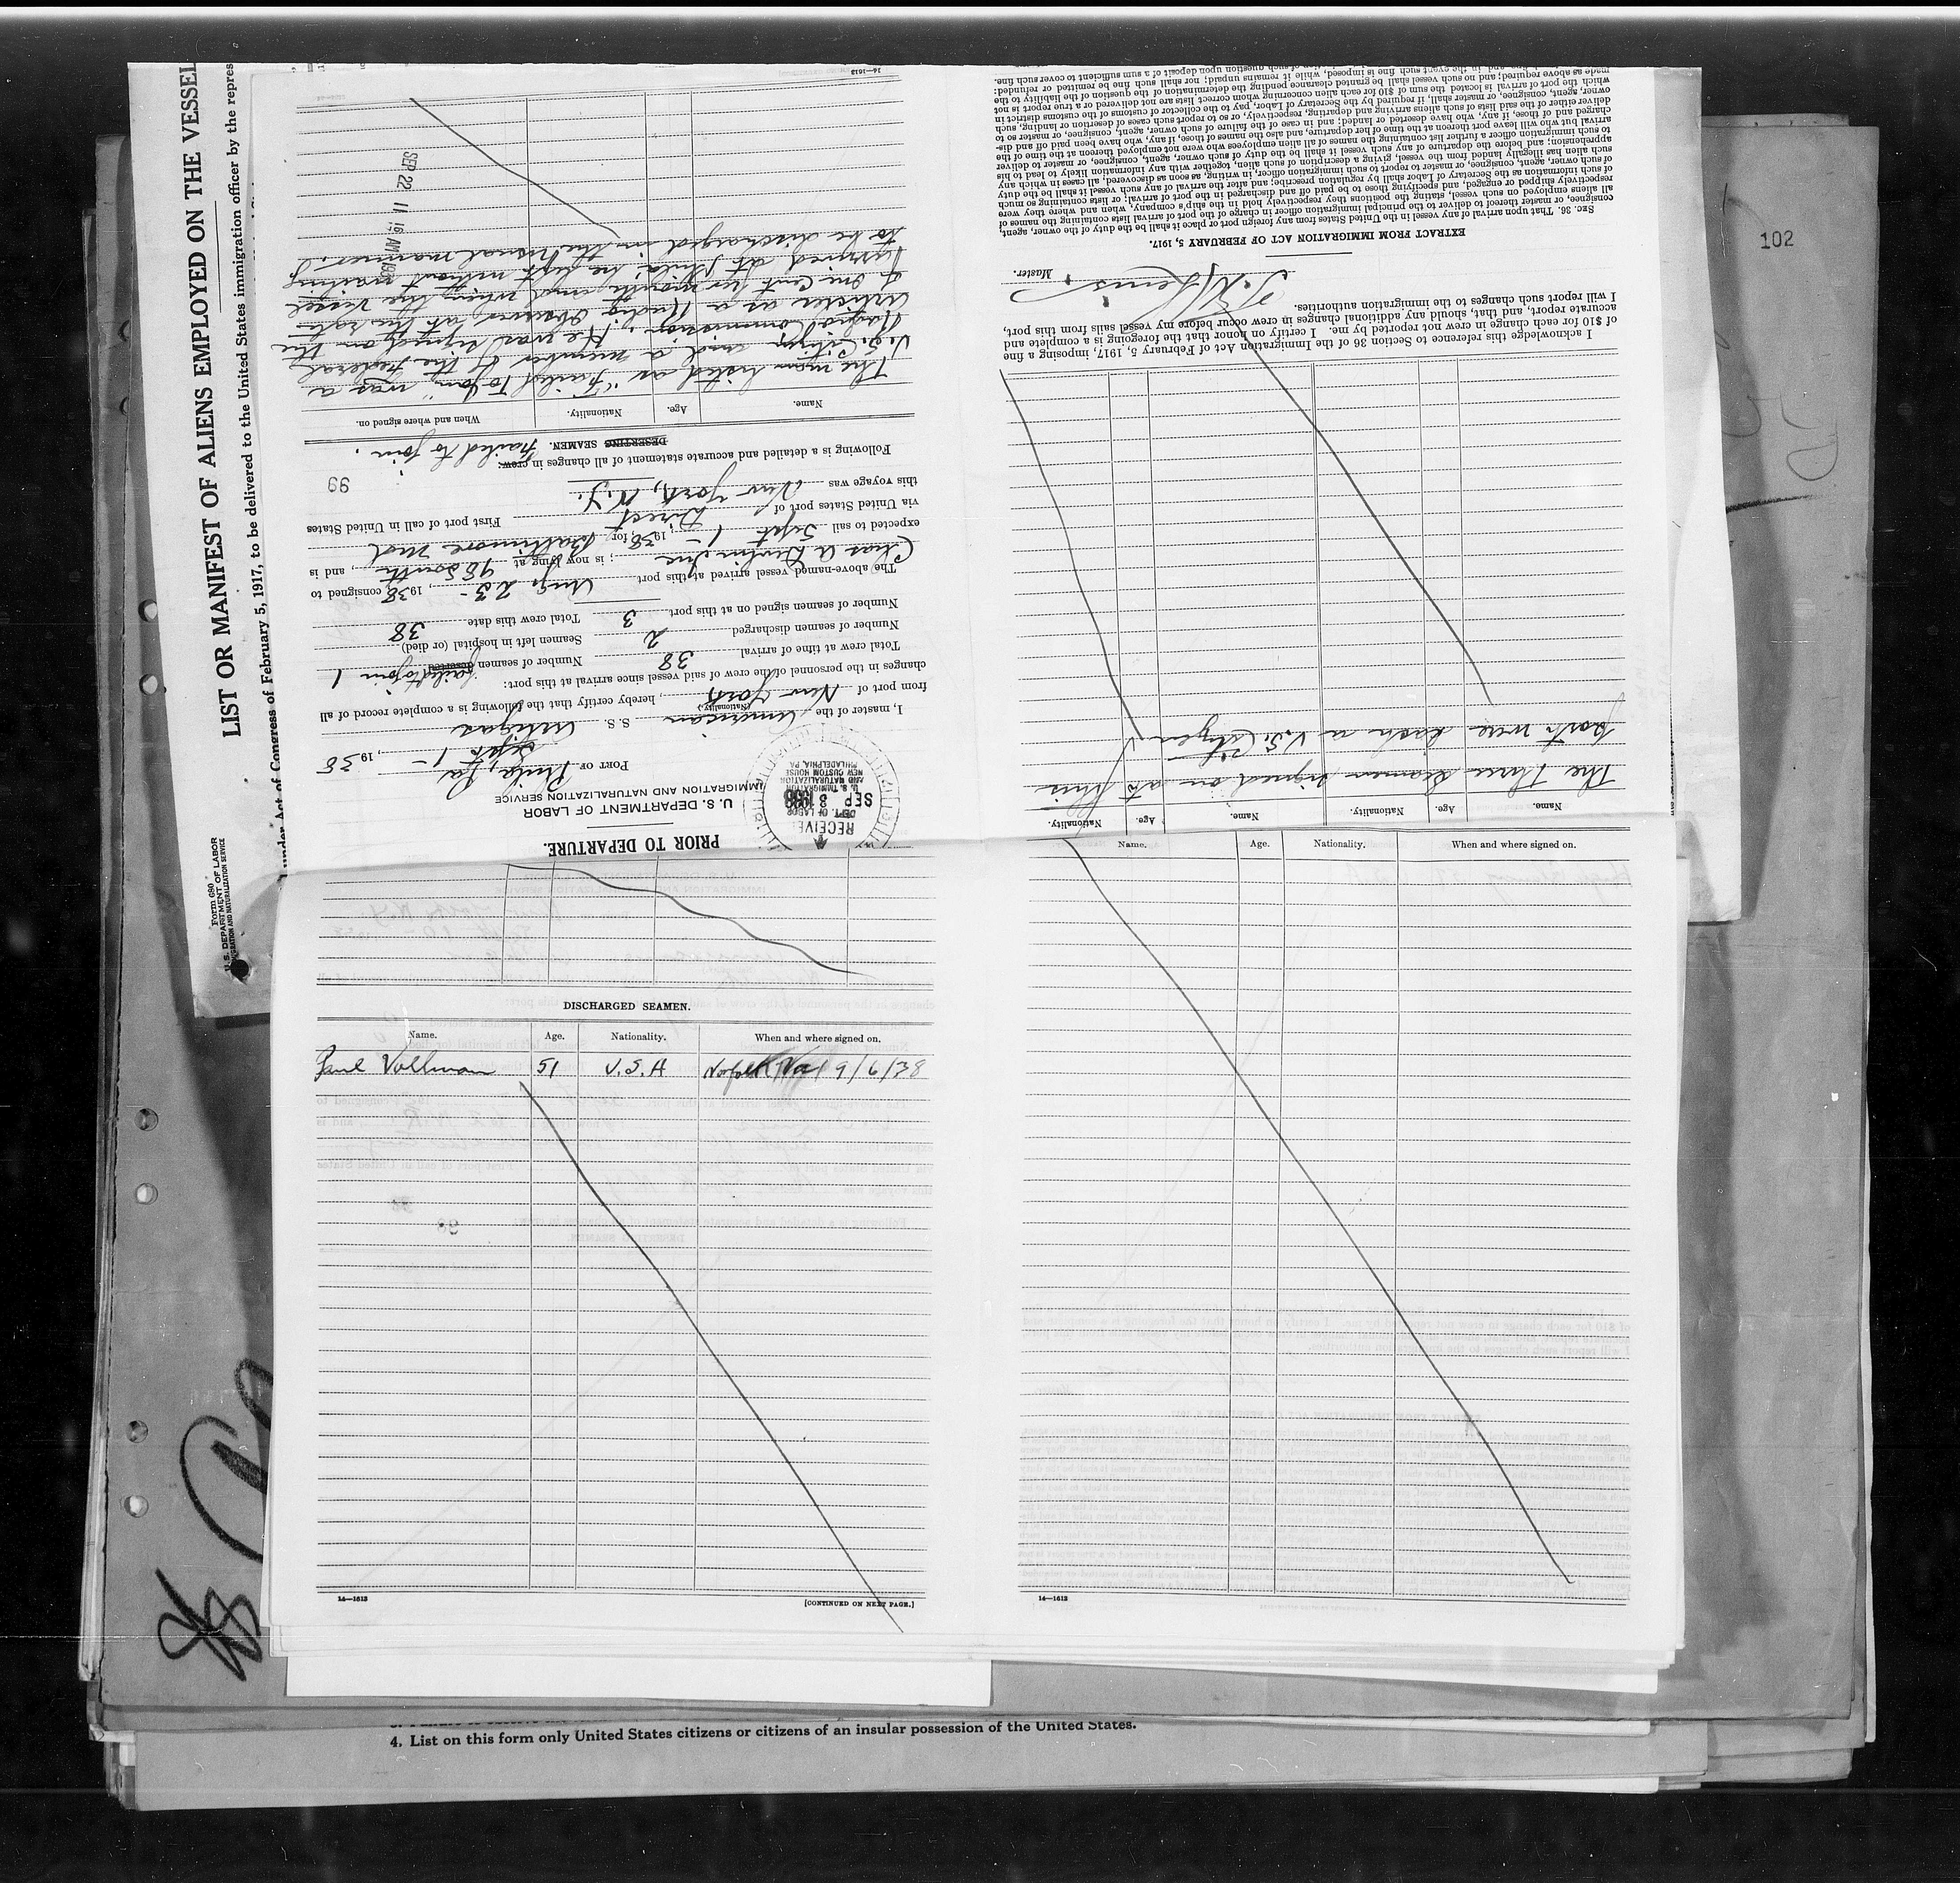 LIST OR MANIFEST OF ALIENS EMPLOYED ON THE VESSEL
under Act of Congress of February 5, 1917, to be delivered to the United States immigration officer by the repres
Form 680
U. S. DEPARTMENT OF LABOR
IMMIGRATION AND NATURALIZATION SERVICE
102
PRIOR TO DEPARTURE.
U. S. DEPARTMENT OF LABOR
IMMIGRATION AND NATURALIZATION SERVICE
RECEIVED
DEPT. OF LABOR
SEP 3 1938
U. S. IMMIGRATION
AND NATURALIZATION
NEW CUSTOM HOUSE
PHILADELPHIA, PA
PORT OF Phila, Pa
Sept 1-, 1938
I, master of the American S. S. Artigas
(Nationality.)
from port of New York, hereby certify that the following is a complete record of all
changes in the personnel of the crew of said vessel since arrival at this port:
Total crew at time of arrival 38 Number of seamen deserted failed to join 1
Number of seamen discharged 2 Seamen left in hospital (or died)
Number of seamen signed on at this port 3 Total crew this date 38
The above-named vessel arrived at this port Aug. 23-, 1938, consigned to
Chas ; is now lying at 98 South, and is
expected to sail Sept 1-, 1938, for Baltimore Md
via United States port of Direct First port of call in United States
this voyage was New York, N.Y.
99
Following is a detailed and accurate statement of all changes in crew:
DESERTING SEAMEN. Failed to join.
Name. Age. Nationality. When and where signed on.
The man listed as "Failed to Join" was a
U.S. Citizen and a member of the Federal
Radio Commission. He was signed on the
articles as a Radio Observer at the rate
of one cent per month and when the vessel
arrived at Phila; he left without waiting
to be discharged in the usual manner.
SEP 22 11 16 AM 1938
14—1613
Name. Age. Nationality. Name. Age. Nationality.
The three seamen signed on at this
port were each a U.S. Citizen
I acknowledge this reference to Section 36 of the Immigration Act of February 5, 1917, imposing a fine
of $10 for each change in crew not reported by me. I certify on honor that the foregoing is a complete and
accurate report, and that, should any additional changes in crew occur before my vessel sails from this port,
I will report such changes to the immigration authorities.
Master.
EXTRACT FROM IMMIGRATION ACT OF FEBRUARY 5, 1917.
SEC. 36. That upon arrival of any vessel in the United States from any foreign port or place it shall be the duty of the owner, agent,
consignee, or master thereof to deliver to the principal immigration officer in charge of the port of arrival lists containing the names of
all aliens employed on such vessel, stating the positions they respectively hold in the ship's company, when and where they were
respectively shipped or engaged, and specifying those to be paid off and discharged in the port of arrival; or lists containing so much
of such information as the Secretary of Labor shall by regulation prescribe; and after the arrival of any such vessel it shall be the duty
of such owner, agent, consignee, or master to report to such immigration officer, in writing, as soon as discovered, all cases in which any
such alien has illegally landed from the vessel, giving a description of such alien, together with any information likely to lead to his
apprehension; and before the departure of any such vessel it shall be the duty of such owner, agent, consignee, or master to deliver
to such immigration officer a further list containing the names of all alien employees who were not employed thereon at the time of the
arrival but who will leave port thereon at the time of her departure, and also the names of those, if any, who have been paid off and dis-
charged and of those, if any, who have deserted or landed; and in case of the failure of such owner, agent, consignee, or master so to
deliver either of the said lists of such aliens arriving and departing, respectively, or so to report such cases of desertion or landing, such
owner, agent, consignee, or master shall, if required by the Secretary of Labor, pay to the collector of customs of the customs district in
which the port of arrival is located the sum of $10 for each alien concerning whom correct lists are not delivered or a true report is not
made as above required; and no such vessel shall be granted clearance pending the determination of the question of the liability to the
payment of such fine and, in the event such fine is imposed, while it remains unpaid; nor shall such fine be remitted or refunded:
DISCHARGED SEAMEN.
Name. Age. Nationality. When and where signed on.
Paul Vollman 51 U.S.A Norfolk Va 9/6/38
14—1613
[CONTINUED ON NEXT PAGE.]
Name. Age. Nationality. When and where signed on.
14—1613
4. List on this form only United States citizens or citizens of an insular possession of the United States.